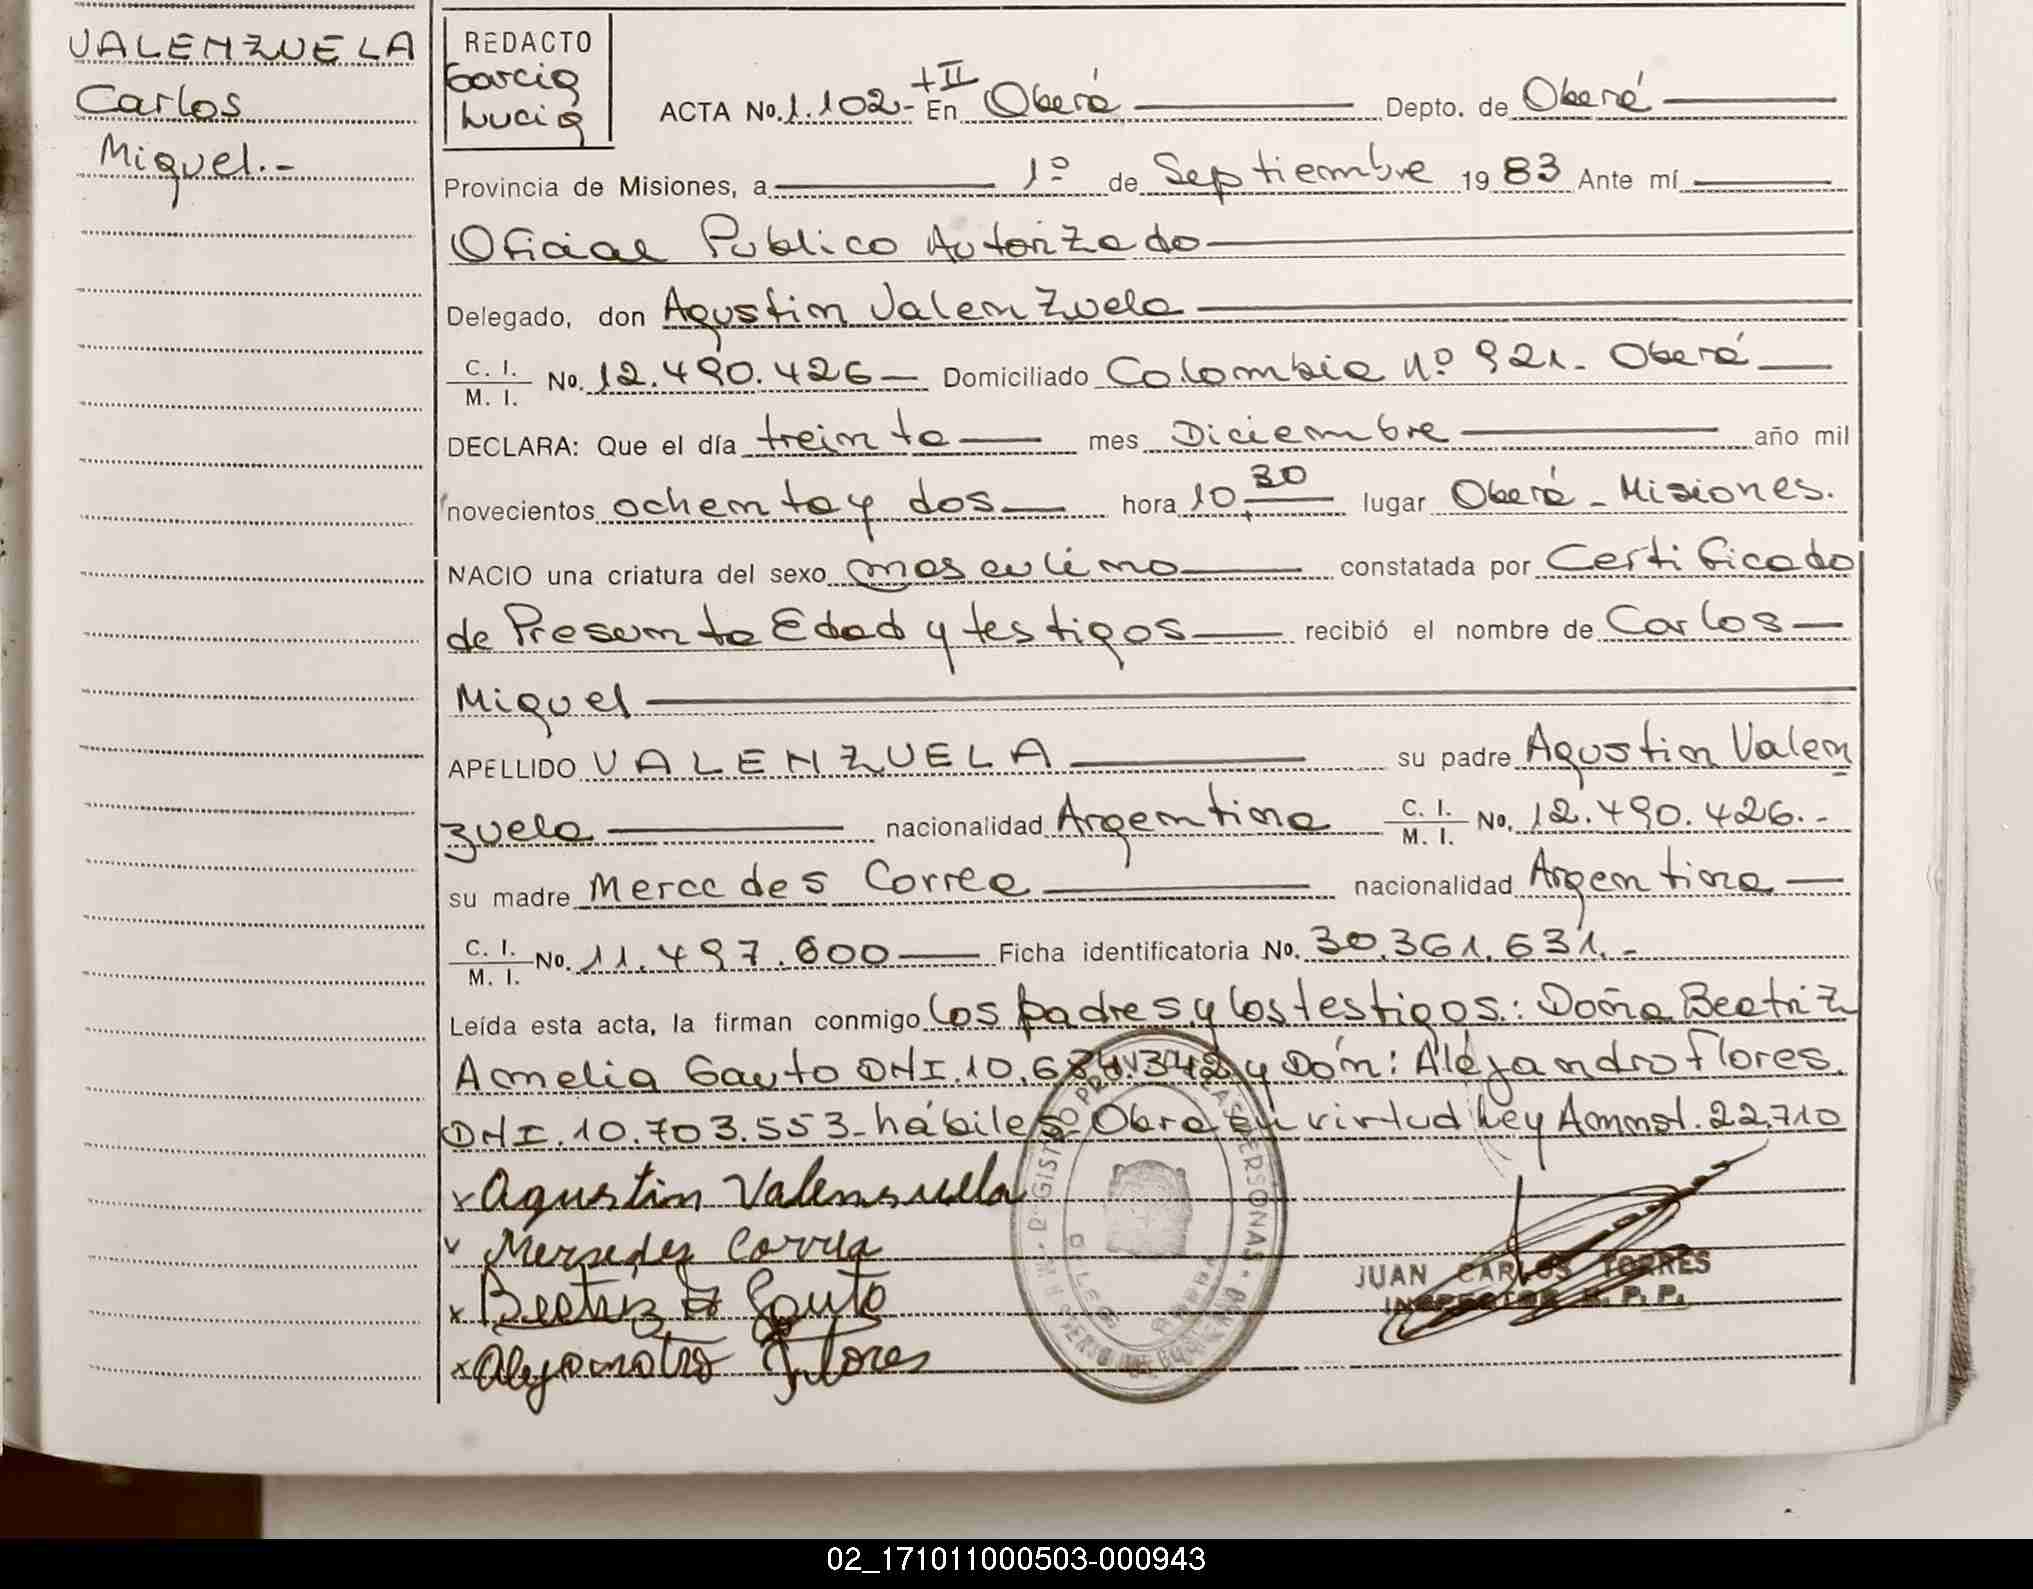 VALENZUELA
Carlos
Miguel.-
REDACTO
Garcia
Lucia
ACTA No. 1.102- +II En Oberá Depto. de Oberá
Provincia de Misiones, a 1º de Septiembre 1983 Ante mí
Oficial Publico Autorizado
Delegado, don Agustin Valenzuela
C. I. / M. I. No. 12.490.426 Domiciliado Colombia nº 921. Oberá
DECLARA: Que el día treinta mes Diciembre año mil
novecientos ochenta y dos hora 10,30 lugar Oberá - Misiones.
NACIO una criatura del sexo masculino constatada por Certificado
de Presunta Edad y testigos recibió el nombre de Carlos
Miguel
APELLIDO VALENZUELA su padre Agustin Valen
zuela nacionalidad Argentina C. I. / M. I. No. 12.490.426.-
su madre Mercedes Correa nacionalidad Argentina
C. I. / M. I. No. 11.497.600 Ficha identificatoria No. 30.361.631.-
Leída esta acta, la firman conmigo los padres y los testigos: Doña Beatriz
Amelia Gauto DNI. 10.684.342 y Dón: Alejandro flores.
DNI. 10.703.553- hábiles- Obra en virtud Ley Amnst. 22.710
x Agustin Valensuela
Mersedes Correa
x Beatriz Gauto
x Alejandro Flores
JUAN CARLOS TORRES
INSPECTOR R. P. P.
02_171011000503-000943